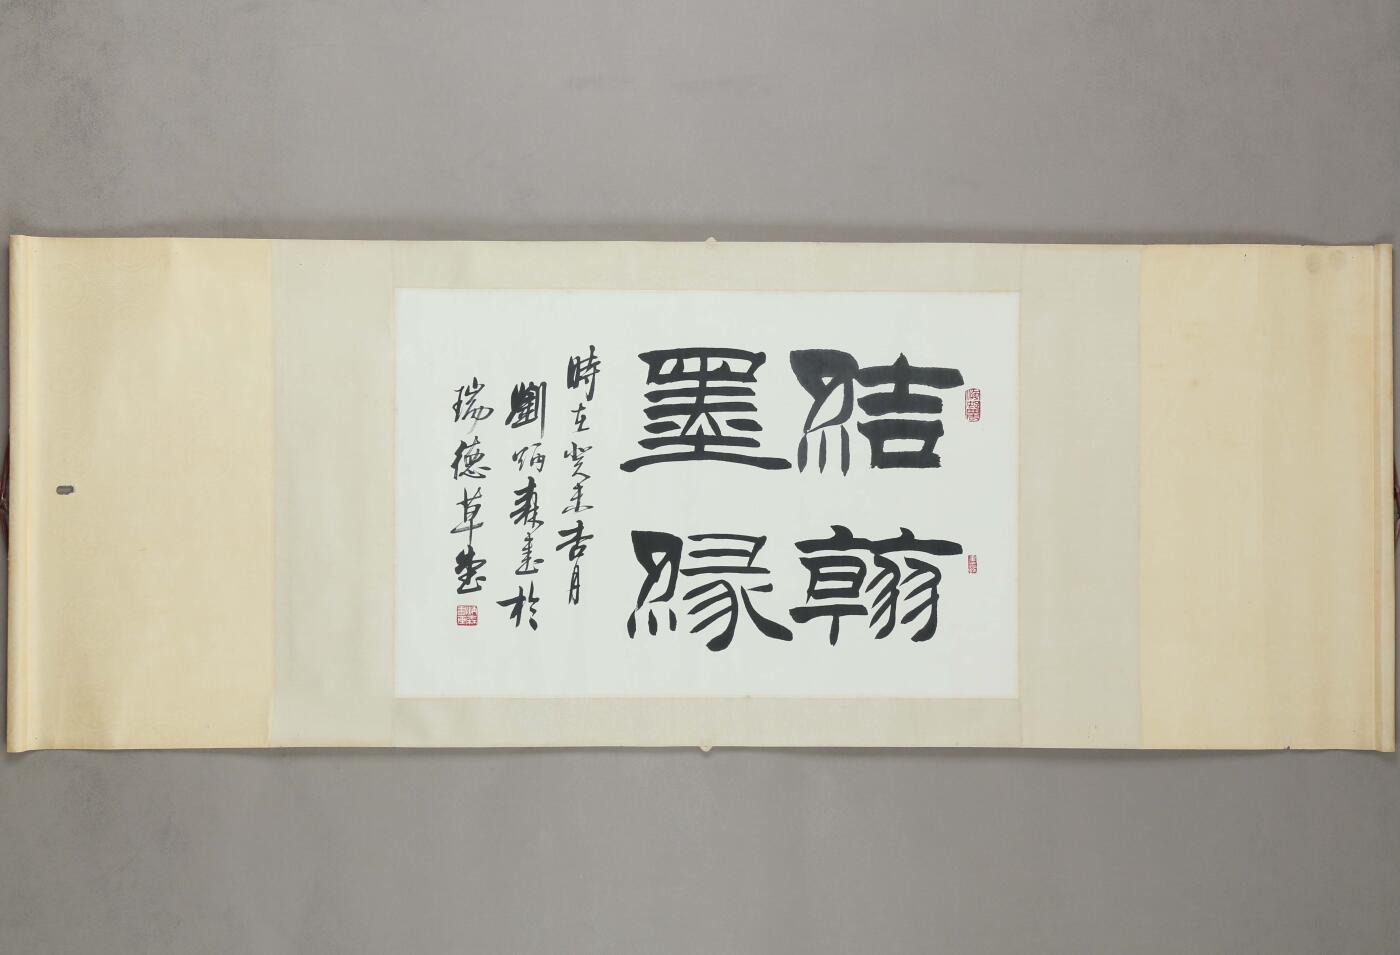 結翰
墨緣
時在癸未杏月
劉炳森書於
瑞德草堂